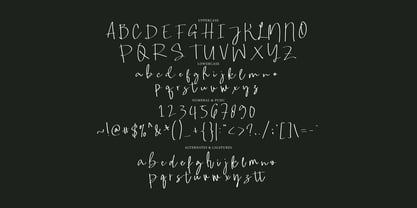 UPPERCASE
ABCDEFGHIJKLMNO
PQRSTUVWXYZ
LOWERCASE
abcdefghijklmno
pqrstuvwxyz
NUMERAL & PUNC
1234567890
~!@#$%^&*()_+{}|:"<>?../;'[]\=-`
ALTERNATES & LIGATURES
abcdefghijklmno
pqrstuvwxyztt